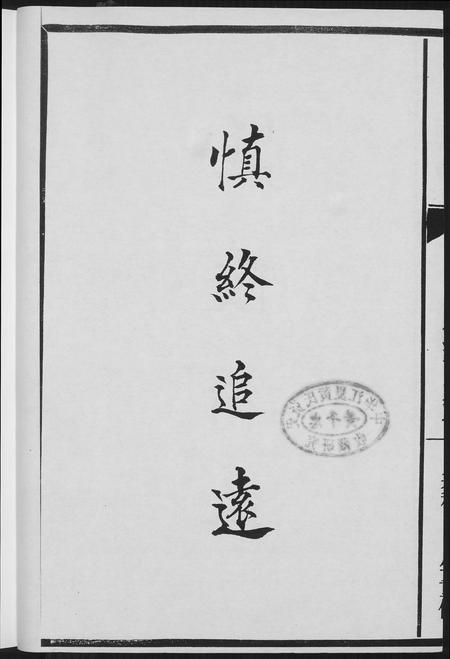 慎終追遠